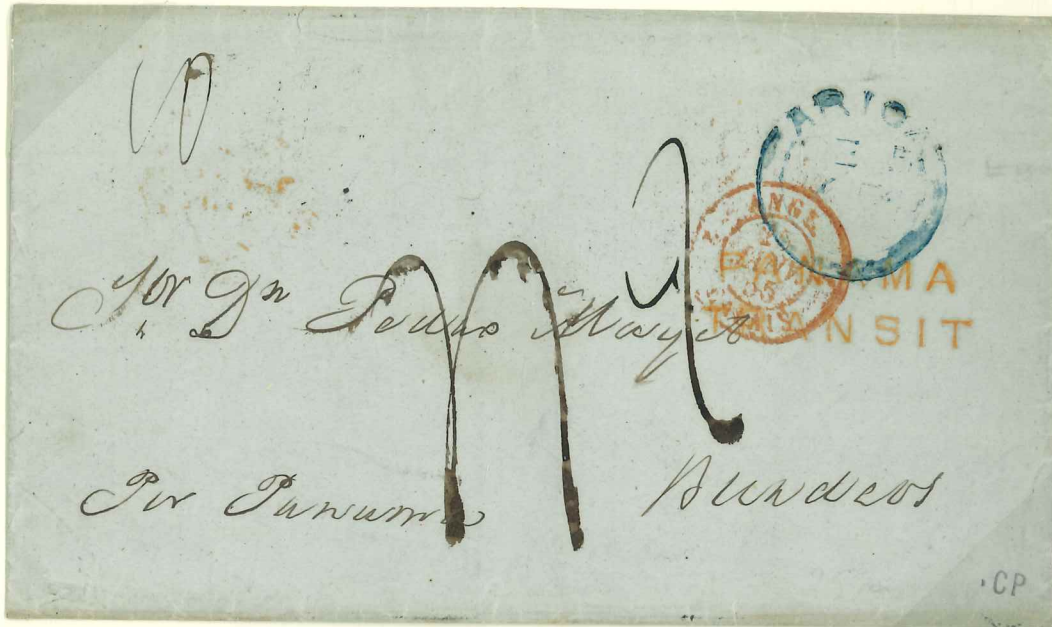 ARICA
ANGL.
PANAMA
TRANSIT
Sor Dn Pedro Mayet
Por Panama
Burdeos
CP